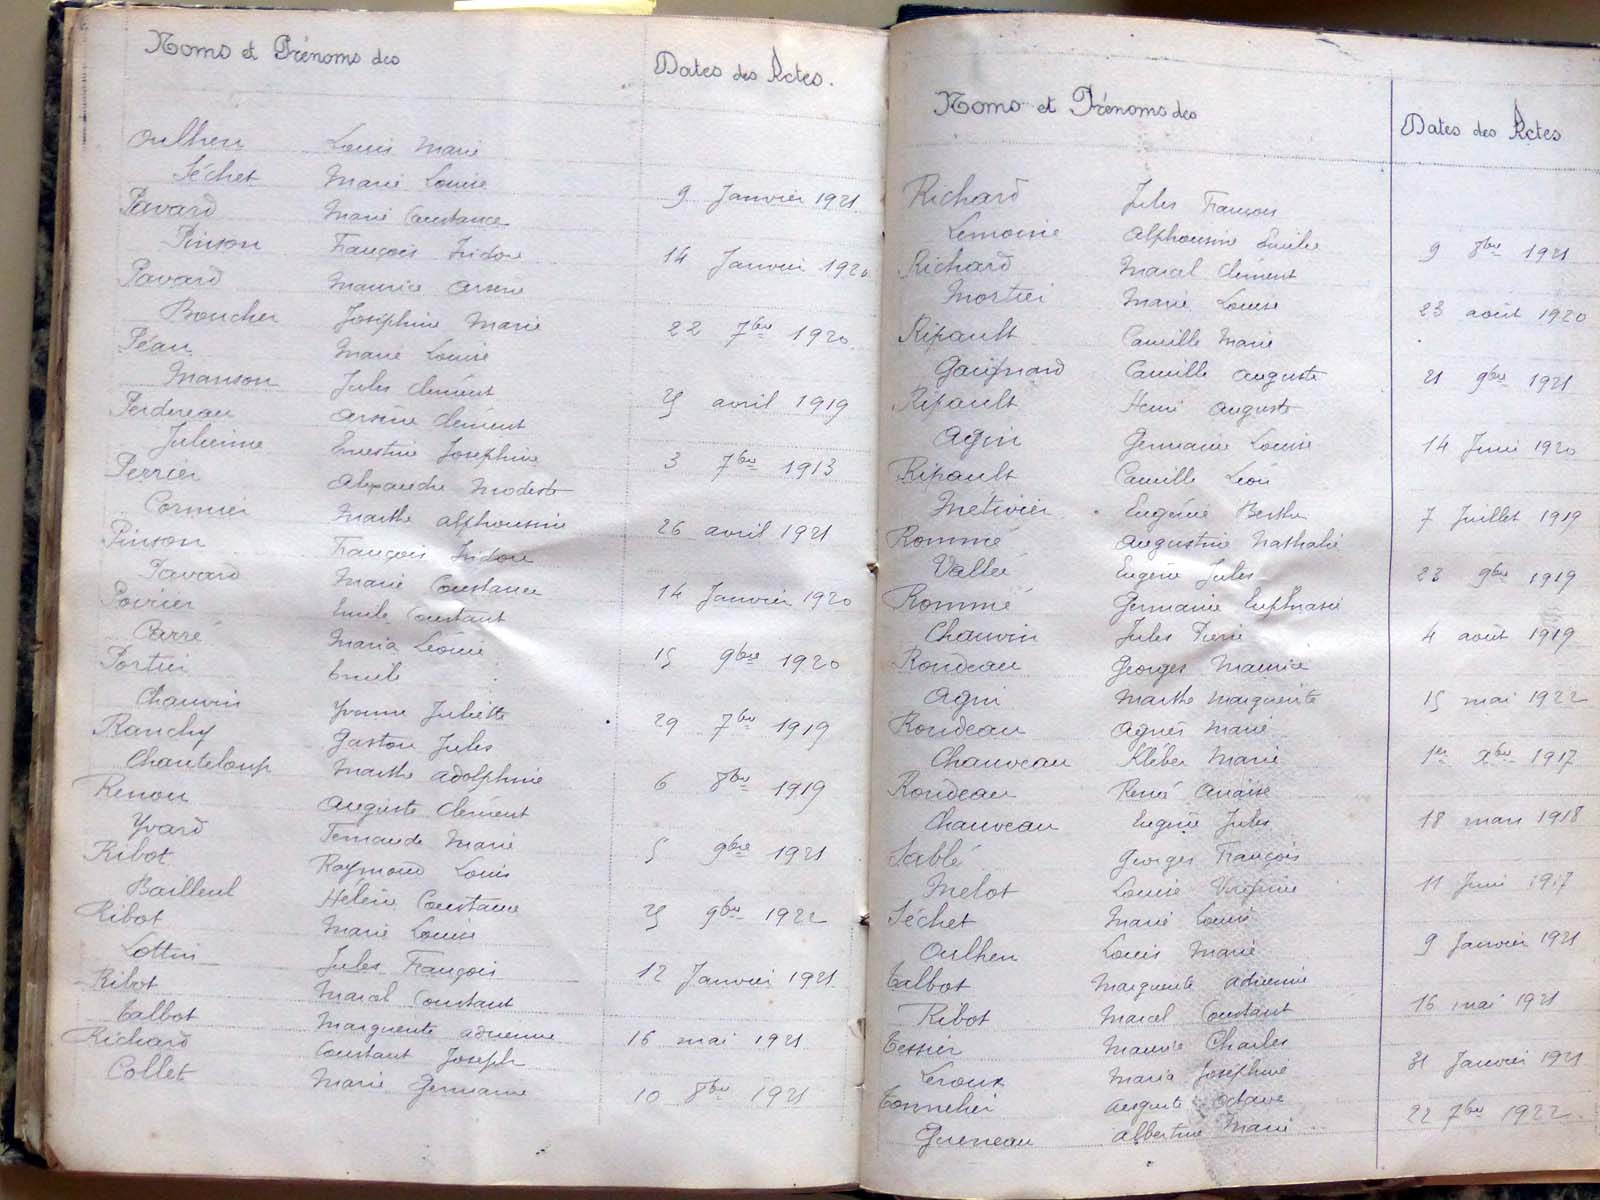 Noms et Prénoms des Dates des Actes.
Oulhen Louis Marie
Séchet Marie Louise 9 Janvier 1921
Pavard Marie Constance
Pinson François Isidore 14 Janvier 1920
Pavard Maurice Arsène
Boucher Joséphine Marie 22 7bre 1920
Péan Marie Louise
Manson Jules Clément 25 avril 1919
Perdereau Arsène Clément
Julienne Ernestine Joséphine 3 7bre 1913
Perrier Alexandre Modeste
Cormier Marthe Alphonsine 26 avril 1921
Pinson François Isidore
Pavard Marie Constance 14 Janvier 1920
Poirier Emile Constant
Carré Maria Léonie 15 9bre 1920
Portier Emile
Chauvin Yvonne Juliette 29 7bre 1919
Ranchy Gaston Jules
Chanteloup Marthe Adolphine 6 8bre 1919
Renou Auguste Clément
Yvard Fernande Marie 5 9bre 1921
Ribot Raymond Louis
Bailleul Hélène Constance 25 9bre 1922
Ribot Marie Louise
Lottin Jules François 12 Janvier 1921
Ribot Marcel Constant
Talbot Marguerite Adrienne 16 mai 1921
Richard Constant Joseph
Collet Marie Germaine 10 8bre 1921
Noms et Prénoms des Dates des Actes
Richard Jules François
Lemoine Alphonsine Emilie 9 8bre 1921
Richard Marcel Clément
Mortier Marie Louise 23 août 1920
Ripault Camille Marie
Gaignard Camille Auguste 21 9bre 1921
Ripault Henri Auguste
Agin Germaine Louise 14 Juin 1920
Ripault Camille Léon
Métivier Eugénie Berthe 7 Juillet 1919
Rommé Augustine Nathalie
Vallée Eugène Jules 23 9bre 1919
Rommé Germaine Euphrasie
Chauvin Jules Pierre 4 août 1919
Rondeau Georges Maurice
Agin Marthe Marguerite 15 mai 1922
Rondeau Agnès Marie
Chauveau Kléber Marie 1er Xbre 1917
Rondeau Renée Anaïse
Chauveau Eugène Jules 18 mars 1918
Sablé Georges François
Mélot Louise Virginie 11 Juin 1917
Séchet Marie Louise
Oulhen Louis Marie 9 Janvier 1921
Talbot Marguerite Adrienne
Ribot Marcel Constant 16 mai 1921
Tessier Maurice Charles
Leroux Maria Joséphine 31 Janvier 1921
Tonnelier Auguste Octave
Gueneau Albertine Marie 22 7bre 1922